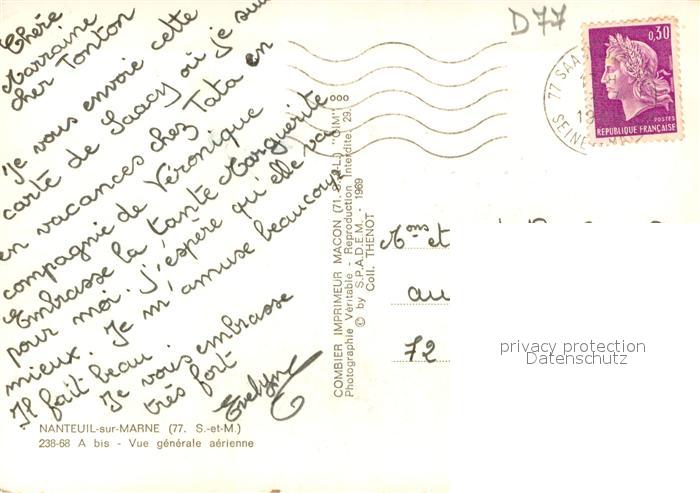 Chère
Marraine
cher Tonton
Je vous envoie cette
carte de Saacy où je suis
en vacances chez Tata en
compagnie de Véronique
Embrasse la tante Marguerite
pour moi. J'espère qu'elle va
mieux. Je m'amuse beaucoup
Il fait beau.
Je vous embrasse
très fort
Evelyne
NANTEUIL-sur-MARNE (77. S.-et-M.)
238-68 A bis - Vue générale aérienne
COMBIER IMPRIMEUR MACON (71. S.-&-L.) "CIM"
Photographie Véritable - Reproduction Interdite
© by S.P.A.D.E.M. - 1969
Coll. THENOT
D77
0,30
POSTES
REPUBLIQUE FRANÇAISE
77 SAA
19
SEINE
Mons et
au
72
privacy protection
Datenschutz